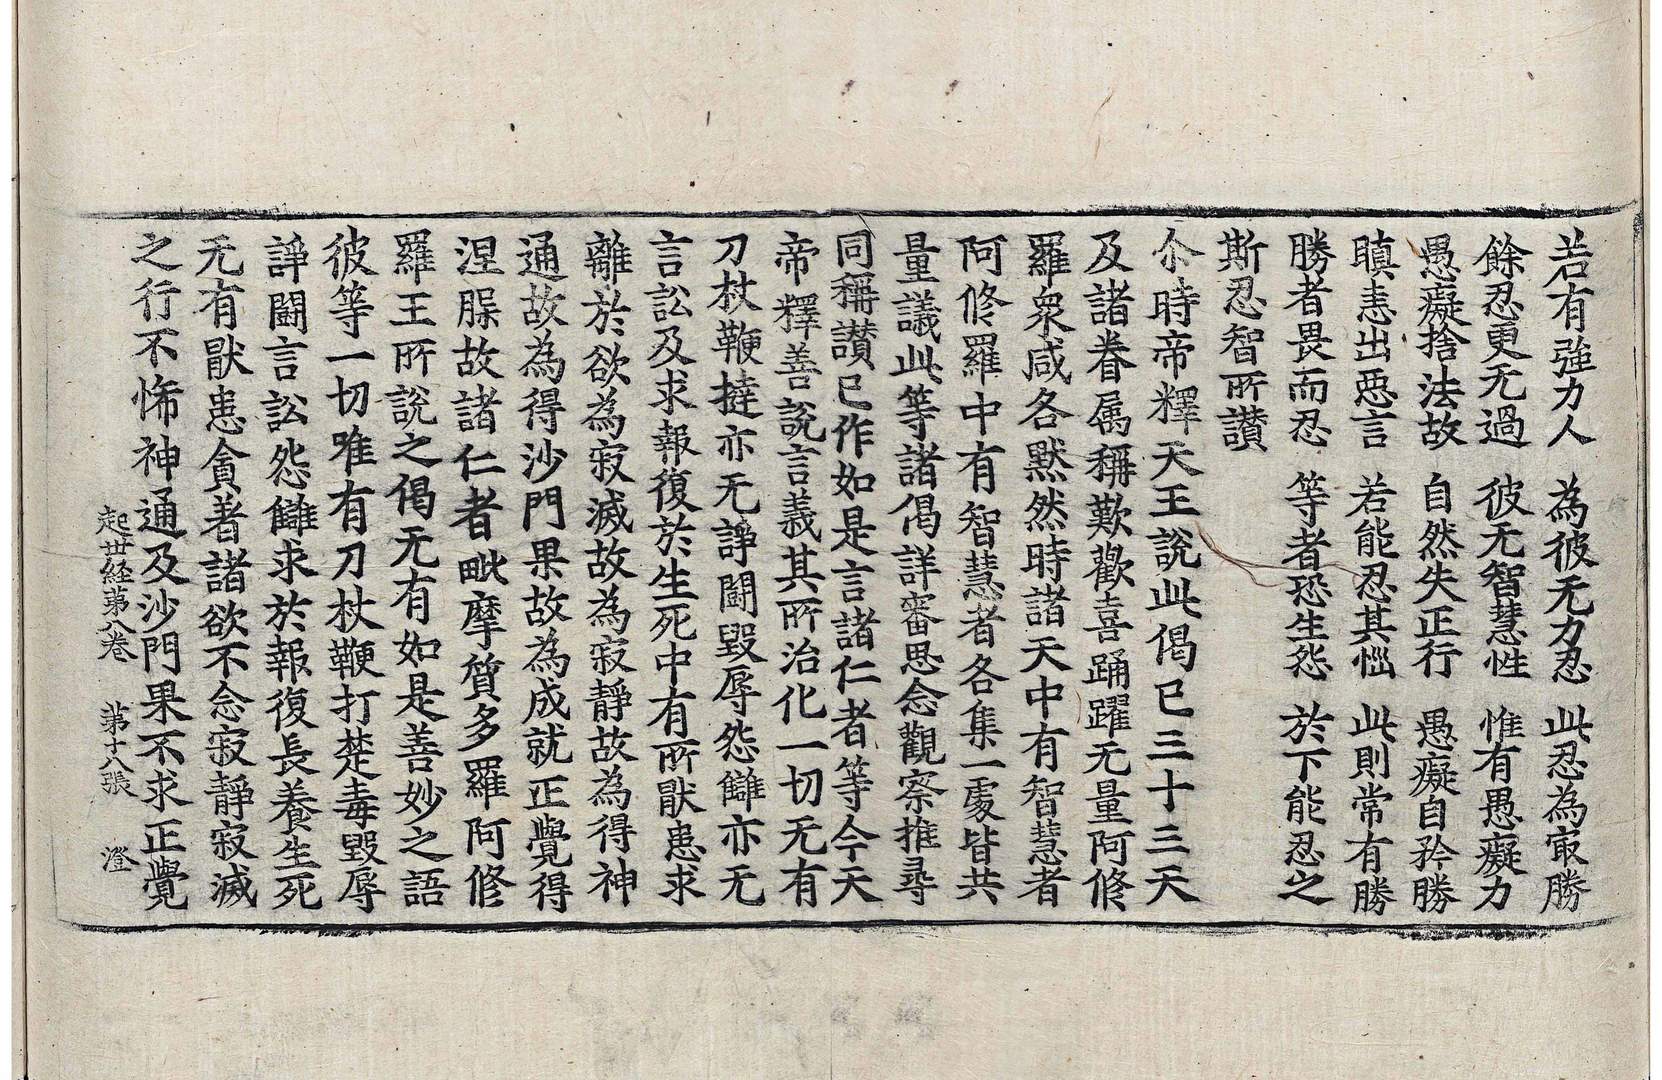 若有強力人 為彼无力忍 此忍為㝡勝
餘忍更无過 彼无智慧性 惟有愚癡力
愚癡捨法故 自然失正行 愚癡自矜勝
瞋恚出惡言 若能忍其惱 此則常有勝
勝者畏而忍 等者恐生怨 於下能忍之
斯忍智所讃
尒時帝釋天王說此偈已三十三天
及諸眷属稱歎歡喜踊躍无量阿修
羅衆咸各黙然時諸天中有智慧者
阿修羅中有智慧者各集一處皆共
量議此等諸偈詳審思念觀察推尋
同稱讃已作如是言諸仁者等今天
帝釋善說言義其所治化一切无有
刀杖鞭撻亦无諍鬪毀辱怨讎亦无
言訟及求報復於生死中有所猒患求
離於欲為寂滅故為寂靜故為得神
通故為得沙門果故為成就正覺得
涅槃故諸仁者毗摩質多羅阿修
羅王所說之偈无有如是善妙之語
彼等一切唯有刀杖鞭打楚毒毀辱
諍鬪言訟怨讎求於報復長養生死
无有猒患貪著諸欲不念寂靜寂滅
之行不悕神通及沙門果不求正覺
起世経苐八巻 苐十八張 澄